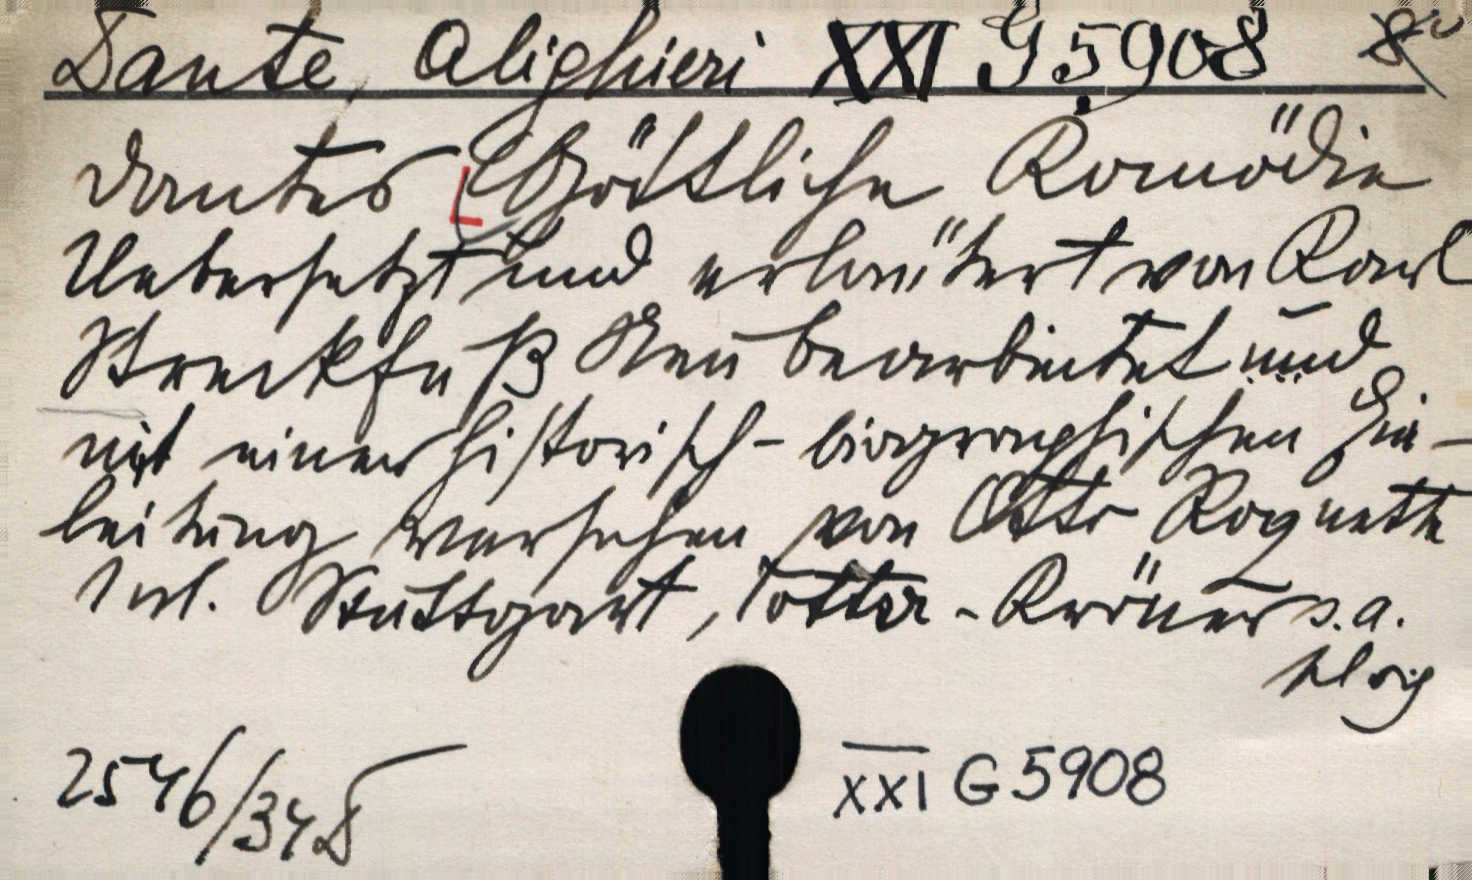 Dante, Alighieri XXI G 5908 8°
Dantes Göttliche Komödie
Uebersetzt und erläutert von Karl
Streckfuß Neu bearbeitet und
mit einer historisch-biographischen Ein-
leitung versehen von Otto Roquette
Stuttgart, Cotta - Kröner s.a.
2546/34 D
XXI G 5908